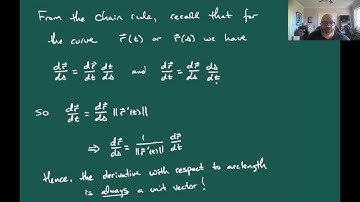 From the chain rule, recall that for
the curve r⃗(t) or r⃗(s) we have
dr⃗/ds = dr⃗/dt dt/ds and dr⃗/dt = dr⃗/ds ds/dt.
So dr⃗/dt = dr⃗/ds ||r⃗'(t)||
⇒ dr⃗/ds = 1/||r⃗'(t)|| dr⃗/dt
Hence, the derivative with respect to arclength
is always a unit vector!